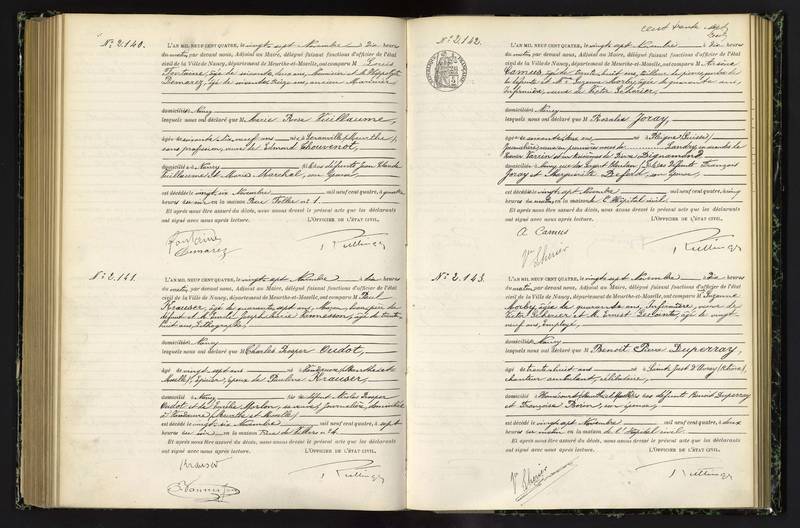 N° 2.140.
L'AN MIL NEUF CENT QUATRE, le vingt sept Novembre à Dix heures
du matin, par devant nous, Adjoint au Maire, délégué faisant fonctions d'officier de l'état
civil de la Ville de Nancy, département de Meurthe-et-Moselle, ont comparu M Louis
Fontaine, âgé de soixante deux ans, Menuisier et M. Hippolyte
Demarez, âgé de soixante treize ans, ancien Menuisier
domiciliés à Nancy
lesquels nous ont déclaré que M Marie Rose Vuillaume,
âgée de soixante dix neuf ans née à (Meurthe),
sans profession, veuve de Edmond Thouvenot,
domiciliée à Nancy fille des défunts Jean Claude
Vuillaume et Marie Marchal, son épouse,
est décédée le vingt six Novembre mil neuf cent quatre, à quatre
heures du soir en la maison Rue n° 1.
Et après nous être assuré du décès, nous avons dressé le présent acte que les déclarants
ont signé avec nous après lecture. L'OFFICIER DE L'ÉTAT CIVIL,
Fontaine
Demarez
N° 2.141.
L'AN MIL NEUF CENT QUATRE, le vingt sept Novembre à dix heures
du matin, par devant nous, Adjoint au Maire, délégué faisant fonctions d'officier de l'état
civil de la Ville de Nancy, département de Meurthe-et-Moselle, ont comparu M Paul
Krauser, âgé de quarante sept ans, Maçon, beau père du
défunt et M. Emile Joseph ans, âgé de trente
huit ans, Lithographe,
domiciliés à Nancy
lesquels nous ont déclaré que M Charles Prosper Oudot,
âgé de vingt sept ans né à Vandoeuvre (Meurthe et
Moselle), Epicier, époux de Pauline Krauser,
domicilié à Nancy fils de défunt Nicolas Prosper
Oudot et de Emélie Morlon, sa veuve, Journalière, domiciliée
à Vandoeuvre (Meurthe et Moselle)
est décédé le vingt six Novembre mil neuf cent quatre, à sept
heures du soir en la maison Rue de Villers n° 4.
Et après nous être assuré du décès, nous avons dressé le présent acte que les déclarants
ont signé avec nous après lecture. L'OFFICIER DE L'ÉTAT CIVIL,
Krauser
cent trente
N° 2.142.
L'AN MIL NEUF CENT QUATRE, le vingt sept Novembre à Dix heures
du matin, par devant nous, Adjoint au Maire, délégué faisant fonctions d'officier de l'état
civil de la Ville de Nancy, département de Meurthe-et-Moselle, ont comparu M Arsène
Camus, âgé de trente huit ans, tailleur de pierres, gendre de
la défunte et Mme Suzanne Morby, âgée de quarante ans,
Infirmière, veuve de Victor Scherier,
domiciliés à Nancy
lesquels nous ont déclaré que M Rosalie Joray,
âgée de soixante ans née à (Suisse)
Journalière, veuve en premières noces de Landry, en secondes de
Xavier Verrier et en troisièmes de Pierre Bignamond
domiciliée à Nancy, rue du Sergent Blandan fille des défunts François
Joray et Marguerite son épouse,
est décédée le vingt sept Novembre mil neuf cent quatre, à cinq
heures du matin, en la maison de l'Hôpital civil.
Et après nous être assuré du décès, nous avons dressé le présent acte que les déclarants
ont signé avec nous après lecture. L'OFFICIER DE L'ÉTAT CIVIL,
A Camus
N° 2.143.
L'AN MIL NEUF CENT QUATRE, le vingt sept Novembre à Dix heures
du matin, par devant nous, Adjoint au Maire, délégué faisant fonctions d'officier de l'état
civil de la Ville de Nancy, département de Meurthe-et-Moselle, ont comparu M Suzanne
Morby, âgée de quarante ans, Infirmière, veuve de
Victor Scherier et M. Ernest âgé de vingt
neuf ans, Employé,
domiciliés à Nancy
lesquels nous ont déclaré que M Benoît Pierre Duperray,
âgé de trente huit ans né à Saint Just d'Avray (Rhône)
chanteur ambulant, célibataire,
domicilié à (Meurthe et Moselle) fils des défunts Benoît Duperray
et Françoise son épouse,
est décédé le vingt sept Novembre mil neuf cent quatre, à deux
heures du matin en la maison de l'Hôpital civil.
Et après nous être assuré du décès, nous avons dressé le présent acte que les déclarants
ont signé avec nous après lecture. L'OFFICIER DE L'ÉTAT CIVIL,